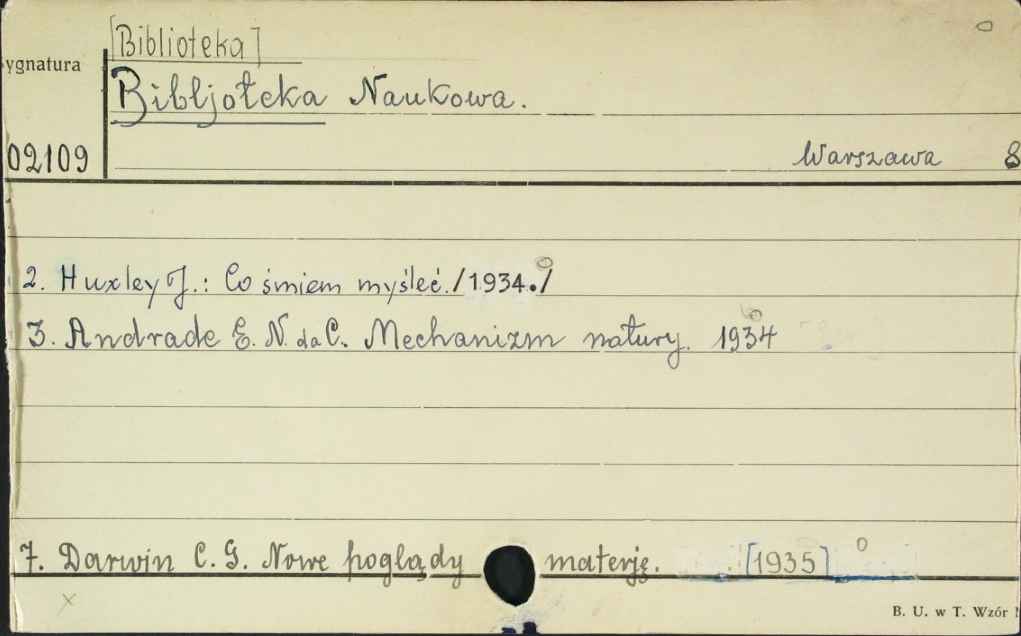 [Biblioteka]
ygnatura
Bibljoteka Naukowa.
02109
Warszawa 8
2. Huxley J.: Co śmiem myśleć. /1934./
3. Andrade E. N. da C. Mechanizm natury. 1934
7. Darwin C. G. Nowe poglądy materję. [1935]
B. U. w T. Wzór